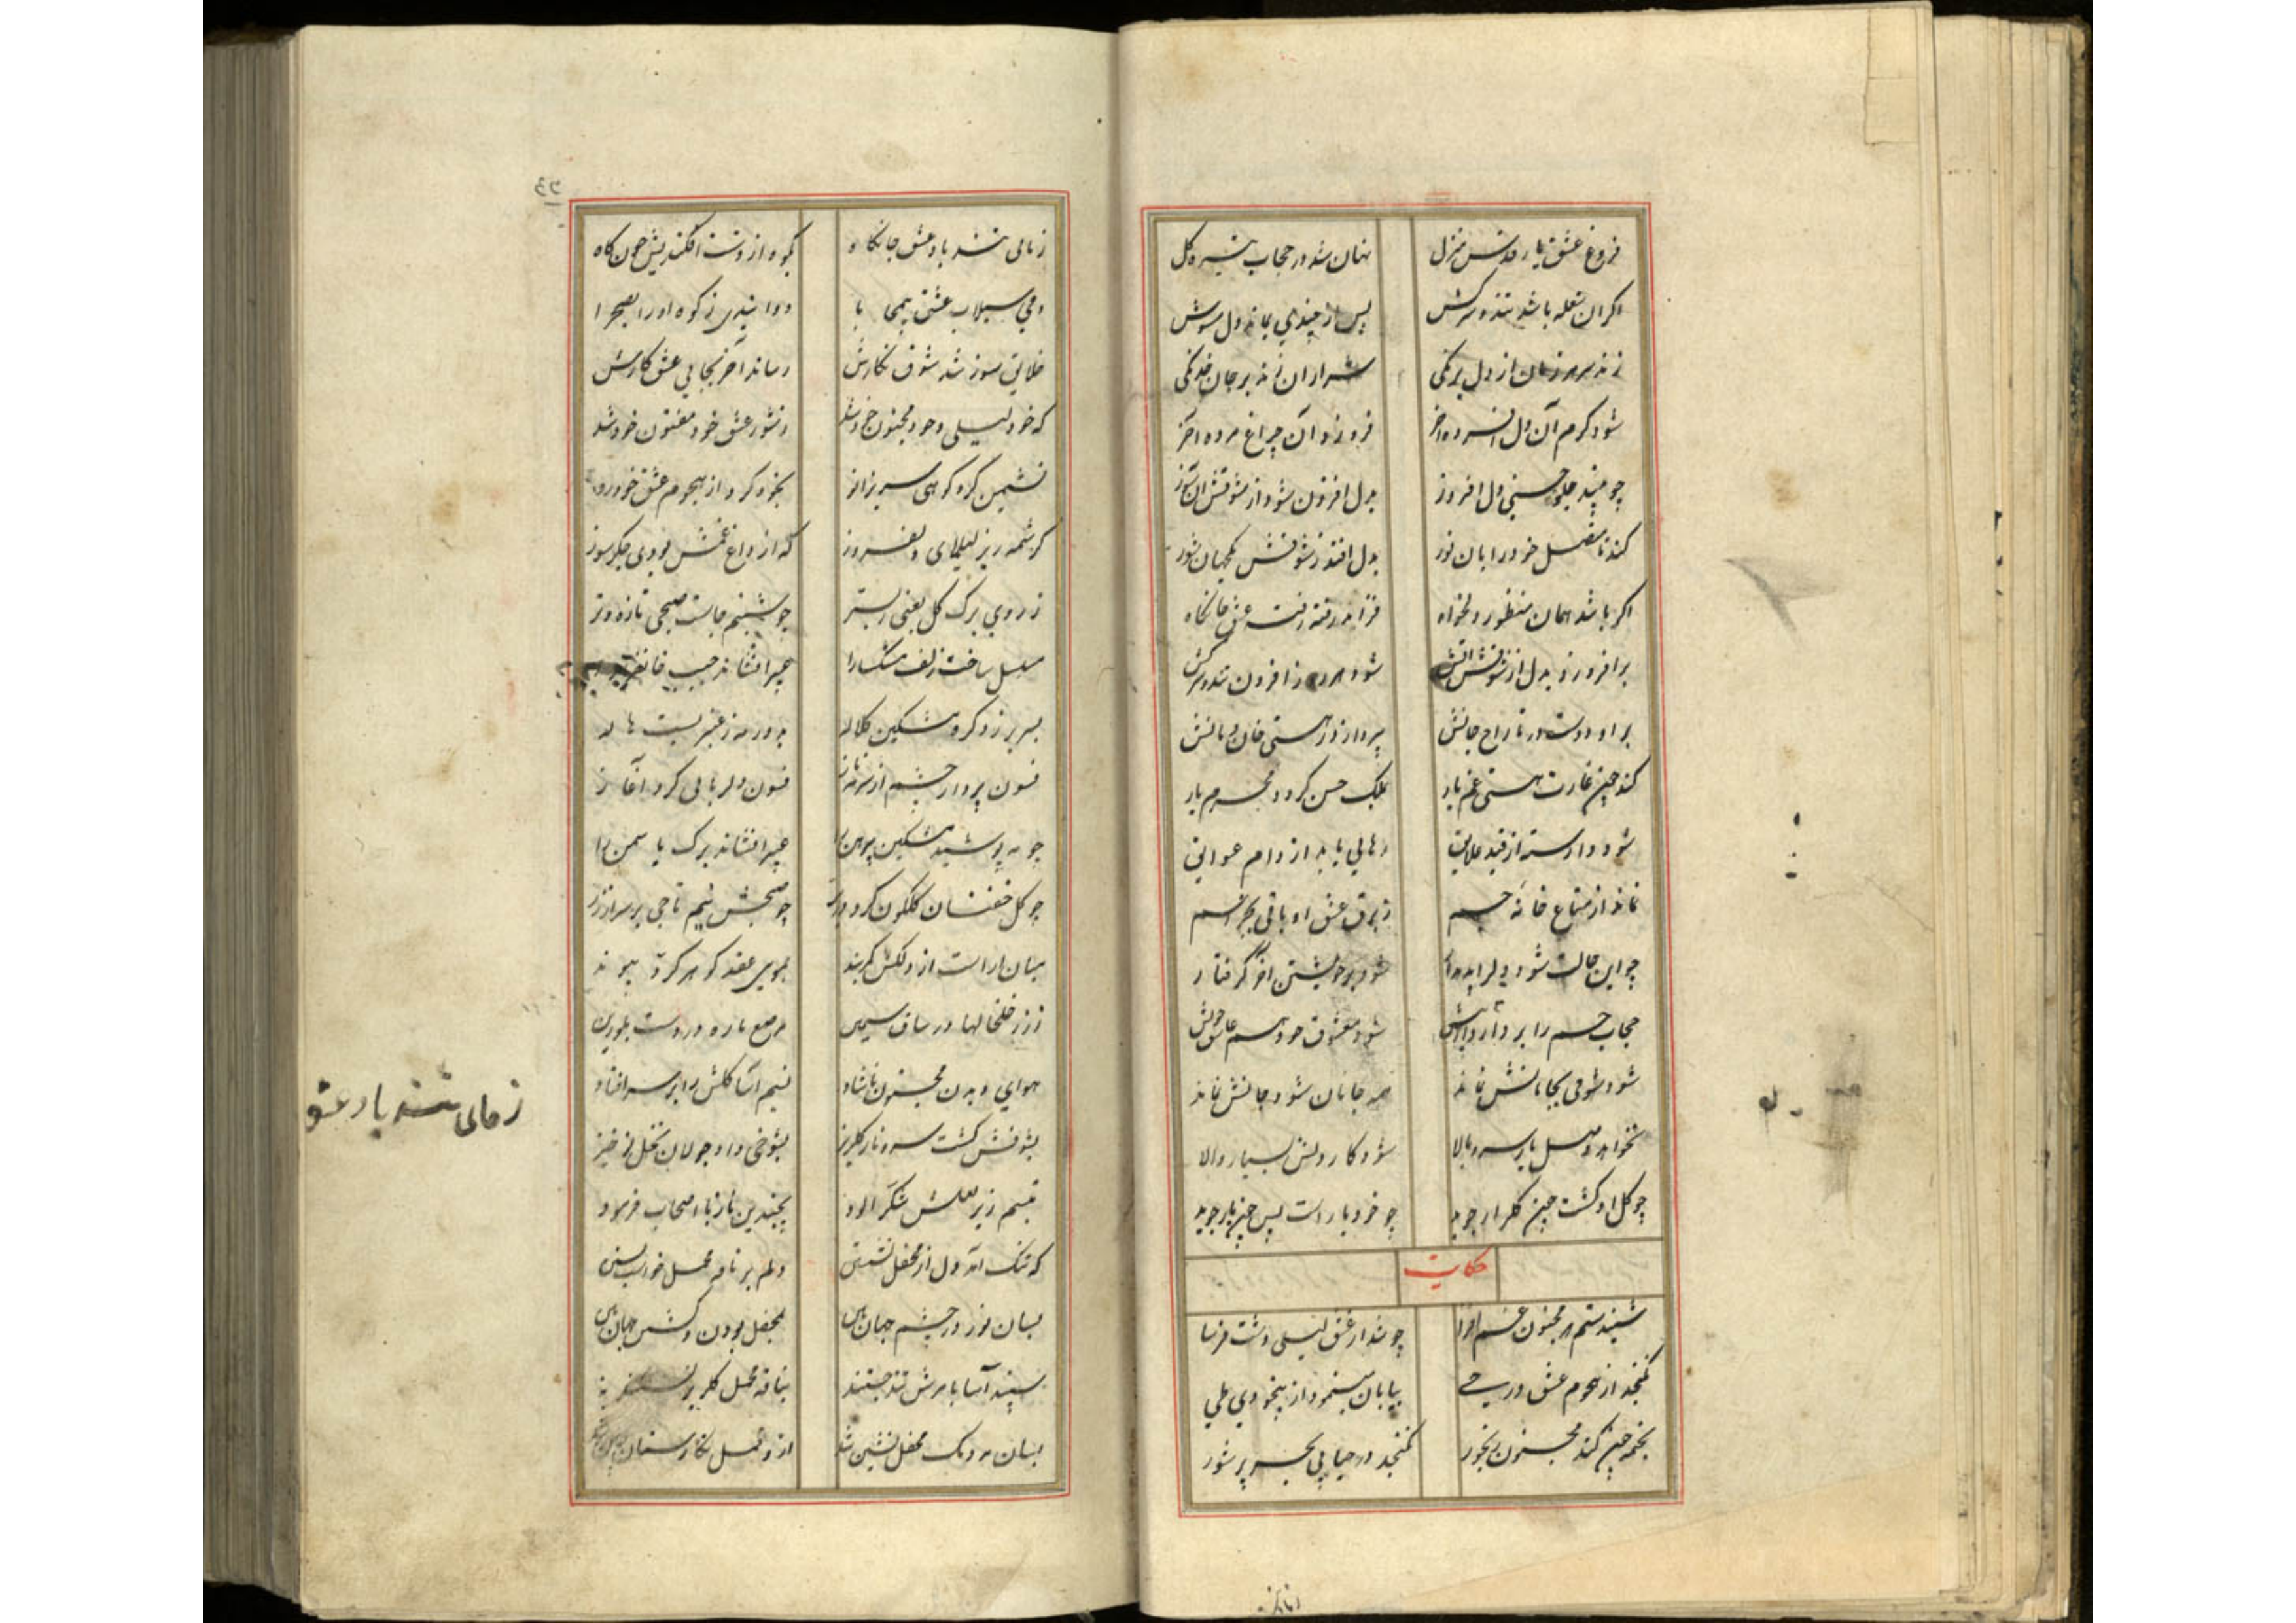 فروغ عشق یار منزل نهان شد در حجاب تیره گل
اگر ان شعله باشد تند و سرکش پس از چندی بماند دل مشوش
زند سر هر زمان از دل برنکی شرار ان زند بر جان خدنکی
شود کرم آن دل افسرده اخر فروزد آن چراغ مرده آخر
چو بیند جلوه حسنی دل افروز بدل افزون شود از شوقش ان سوز
کند تا متصل خود را بان نور بدل افتد ز شوقش یکجهان شور
اکر باشد همان منظور دلخواه فزاید رفته رفته عشق جانکاه
برافروزد بدل از شوقش اتش شود هر روز افزون تند و سرکش
براود دست در تاراج جانش بپردازد ز هستی خان و مانش
کند چون غارت هستی غم یار بملک حسن کردد محرم یار
شود وارسته از قید علایق رهایی یابد از دام عوایق
نماند از متاع خانه جسم ز برق عشق او باقی بجز اسم
چو این حالت شود شود بر خویشتن اخر گرفتار
حجاب جسم را بردارد از پیش شود معشوق خود هم عاشق خویش
شود شوقی بجا نماند همه جانان شود جانش نماند
نخواهد وصل یار سرو بالا شود کار دلش بسیار والا
چو گل او گشت چون گلزار جوید چو خود یار است پس چون یار جوید
حکایت
شنیدستم که مجنون غم افزا چو شد از عشق لیلی دشت فرسا
نگنجد از هجوم عشق در حی بیابان مینمود از بیخودی طی
بخیمه چون کند مجنون رنجور نگنجد در حبابی بحر پر شور
زمانی تند باد عشق جانکاه بکوه از دشت افکندیش چون کاه
دمی سیلاب عشق بیمحابا دوانیدی ز کوه او را بصحرا
خلایق سوز شد شوق نکارش رساند آخر بجایی عشق کارش
که خود لیلی و خود مجنون خود شد ز شور عشق خود مفتون خود شد
نشیمن کرد کوهی سر بزانو بخود کرد از هجوم عشق خود رو
کرشمه ریز لیلای دلفروز که از داغ غمش بودی جگرسوز
ز روی برک کل یعنی ز بستر چو شبنم خاست صبحی تازه و تر
مسلسل ساخت زلف مشکسا را عبیر افشاند جیب
بسر بر زد گره مشکین کلاله بدور مه ز عنبر بست هاله
فسون پرداز چشم از سرمه ناز فسون دلربائی کرد آغاز
چو مه پوشید مشکین پیرهن را عبیر افشاند برک یاسمن را
چو گل خفتان گلگون کرد در بر چو صبحش نیم تاجی بر سر از زر
میان اراست از دلکش کمربند بموی عقد گوهر کرد پیوند
ز زر خلخالها در ساق سیمین مرصع یاره در دست بلورین
هوای دیدن مجنون ناشاد نسیم آسا گلش را بر سر افتاد
بشوخی داد جولان نخل نوخیز
تبسم زیر لعلش شکر الود بچندین ناز با اصحاب فرمود
که تنک آمد دل از محفل نشینی دلم بر ناقه محمل
بسان نور در چشم جهان بین بمحفل بودن
سپند آسا بامرش تند جستند بناقه محمل
بسان مردمک محفل نشین شد از و محمل نگارستان چین شد
زمانی تند باد عشق